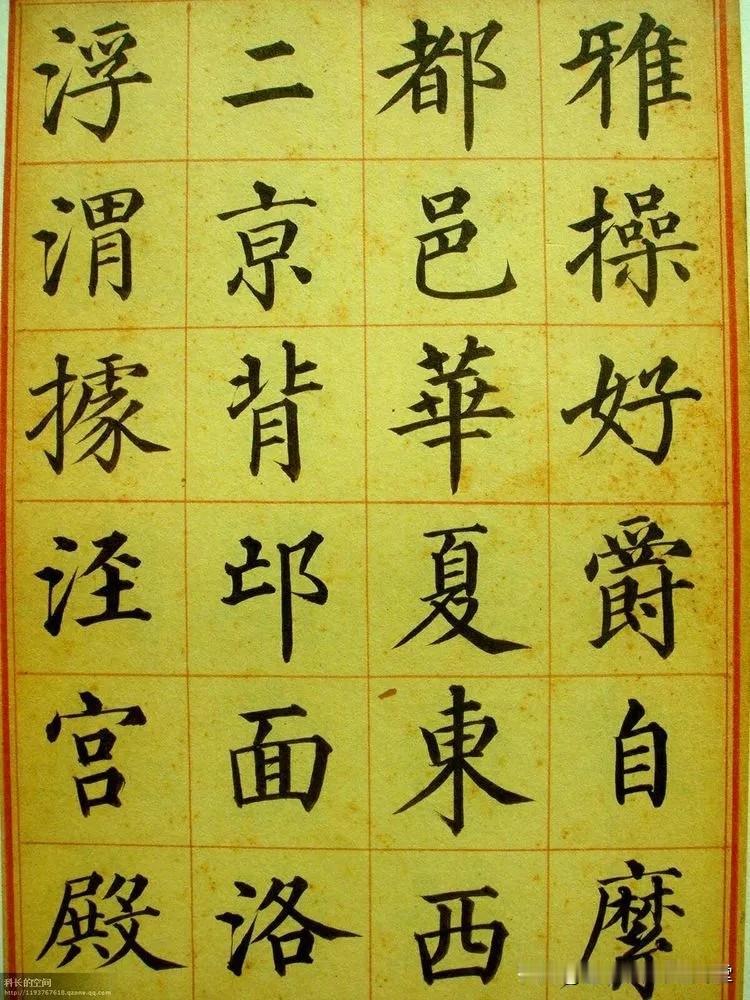 雅操好爵自縻
都邑華夏東西
二京背邙面洛
浮渭據涇宮殿
科长的空间
http://1193767618.qzone.qq.com